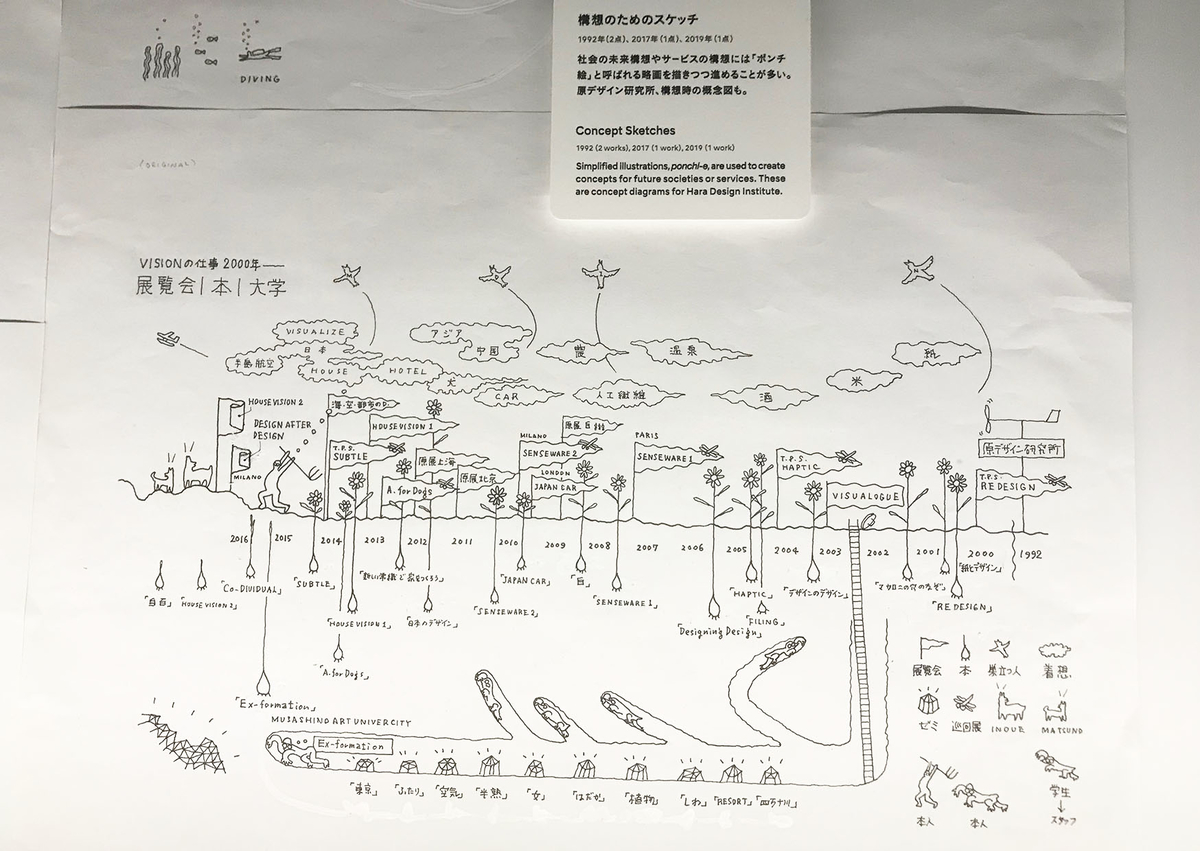 DIVING
構想のためのスケッチ
1992年(2点)、2017年(1点)、2019年(1点)
社会の未来構想やサービスの構想には「ポンチ
絵」と呼ばれる略画を描きつつ進めることが多い。
原デザイン研究所、構想時の概念図も。
Concept Sketches
1992 (2 works), 2017 (1 work), 2019 (1 work)
Simplified illustrations, ponchi-e, are used to create
concepts for future societies or services. These
are concept diagrams for Hara Design Institute.
(ORIGINAL)
VISIONの仕事 2000年—
展覧会|本|大学
VISUALIZE
日本
半島航空
HOUSE
HOTEL
アジア
中国
犬
CAR
農
人工繊維
温泉
酒
米
紙
HOUSE VISION 2
DESIGN AFTER
DESIGN
MILANO
海・空・都市のD.
HOUSE VISION 1
T.P.S.
SUBTLE
原展上海
A. for Dogs
原展北京
MILANO
SENSEWARE 2
LONDON
JAPAN CAR
PARIS
SENSEWARE 1
T.P.S.
HAPTIC
VISUALOGUE
原デザイン研究所
T.P.S.
REDESIGN
2016
2015
2014
2013
2012
2011
2010
2009
2008
2007
2006
2005
2004
2003
2002
2001
2000
1992
「白百」
「HOUSE VISION 2」
「CO-DIVIDUAL」
「SUBTLE」
「HOUSE VISION 1」
「A. for Dogs」
「新しい常識で家をつくろう」
「日本のデザイン」
「JAPAN CAR」
「SENSEWARE 2」
「白」
「SENSEWARE 1」
「Designing Design」
「HAPTIC」
「FILING」
「デザインのデザイン」
「マカロニの穴のなぞ」
「REDESIGN」
「紙とデザイン」
「Ex-formation」
MUSASHINO ART UNIVERCITY
Ex-formation
「東京」
「ふたり」
「空気」
「半熟」
「女」
「はだか」
「植物」
「しわ」
「RESORT」
「四万十川」
展覧会
本
巣立つ人
着想
ゼミ
巡回展
INOUE
MATSUNO
本人
本人
学生
↓
スタッフ